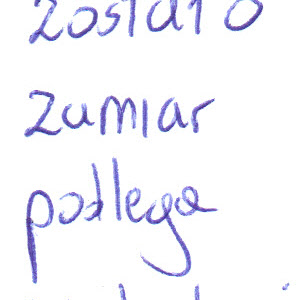 został o
zamiar
podlega